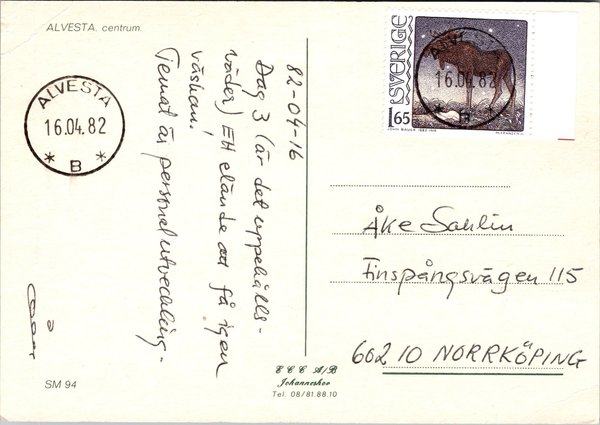 ALVESTA. centrum.
ALVESTA
16.04.82
* B *
82-04-16
Dag 3 (är det uppehålls-
väder) Ett elände att få igen
väskan!
Temat är personel utveckling -
SM 94
E C C A/B
Johanneshov
Tel. 08/81.88.10
SVERIGE
165
JOHN BAUER 1882-1918
16.04.82
Åke Sahlin
Finspångsvägen 115
602 10 NORRKÖPING